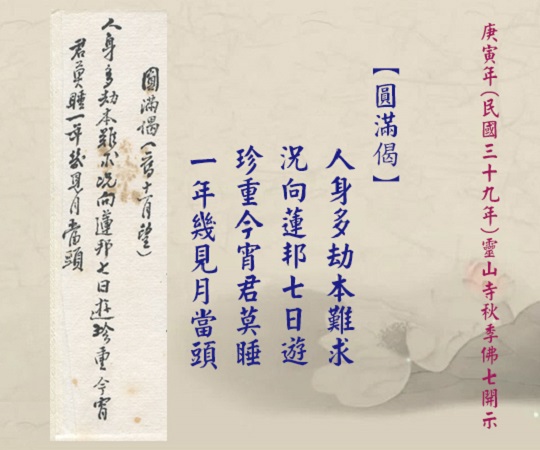 庚寅年(民國三十九年)靈山寺秋季佛七開示
【圓滿偈】
人身多劫本難求
況向蓮邦七日遊
珍重今宵君莫睡
一年幾見月當頭
圓滿偈(
十
月望)
人身多劫本難求況向蓮邦七日遊珍重今宵
君莫睡一年幾見月當頭